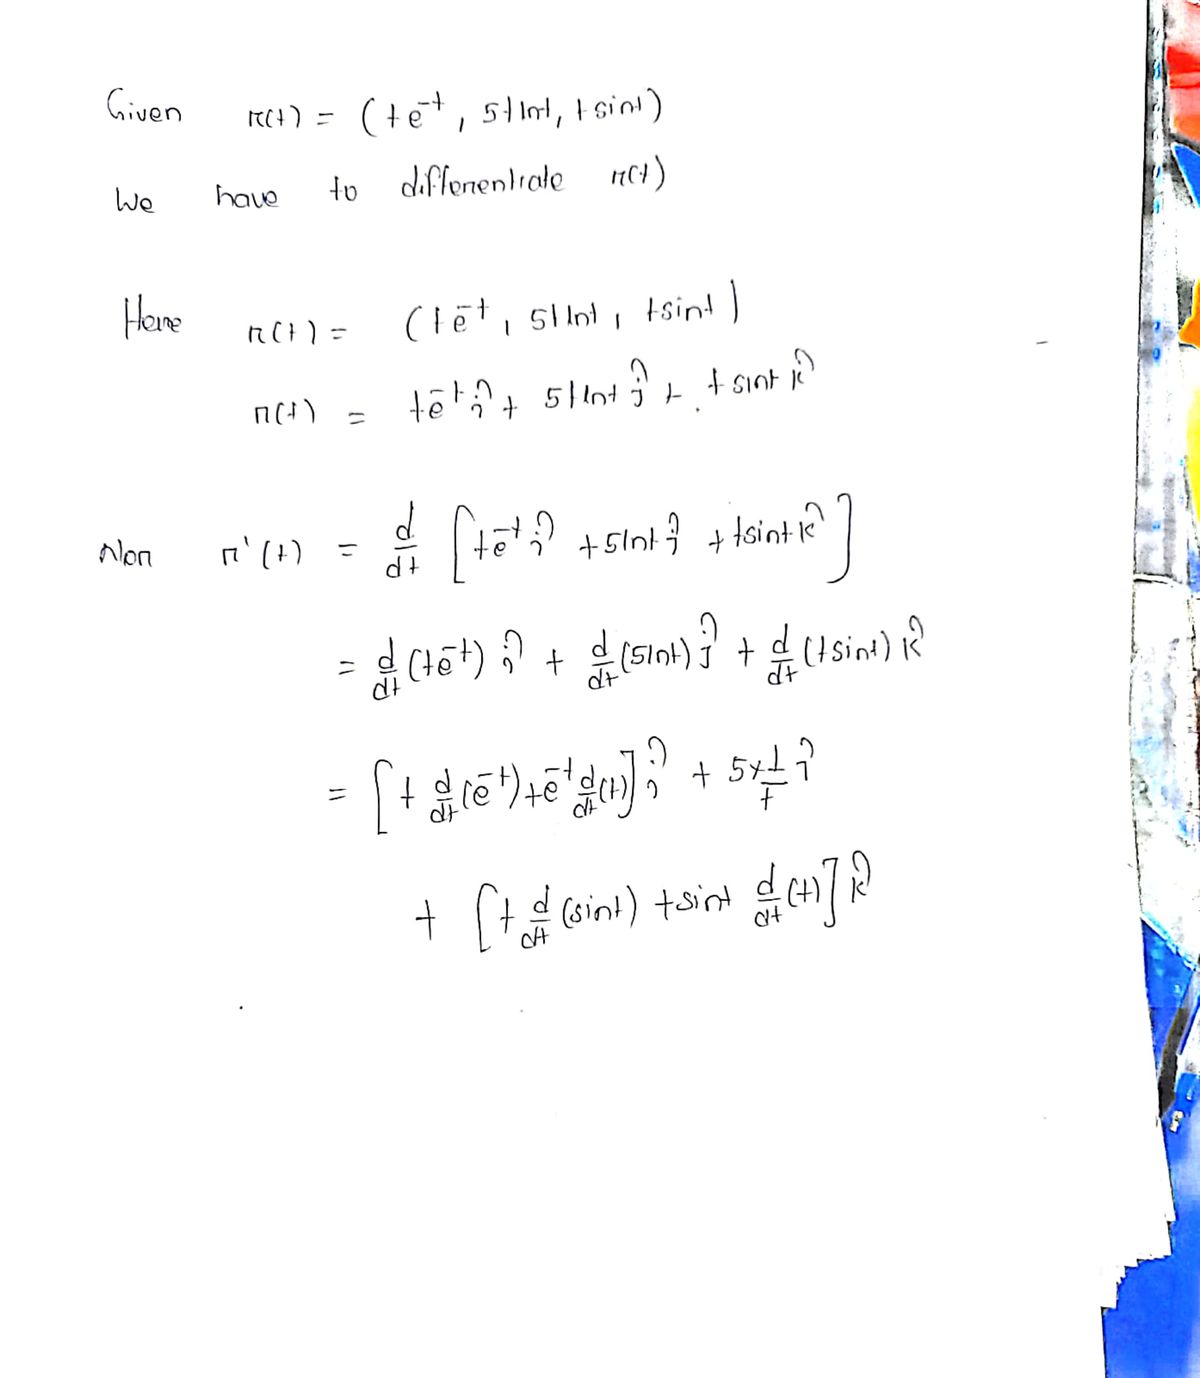 Given r(t) = (te^-t, 5tlnt, tsint)
We have to differentiate r(t)
Here r(t) = (te^-t, 5tlnt, tsint)
r(t) = te^-t î + 5tlnt ĵ + tsint k̂
Now r'(t) = d/dt [te^-t î + 5lnt ĵ + tsint k̂]
= d/dt (te^-t) î + d/dt (5lnt) ĵ + d/dt (tsint) k̂
= [t d/dt (e^-t) + e^-t d/dt (t)] î + 5×1/t ĵ
+ [t d/dt (sint) + sint d/dt (t)] k̂